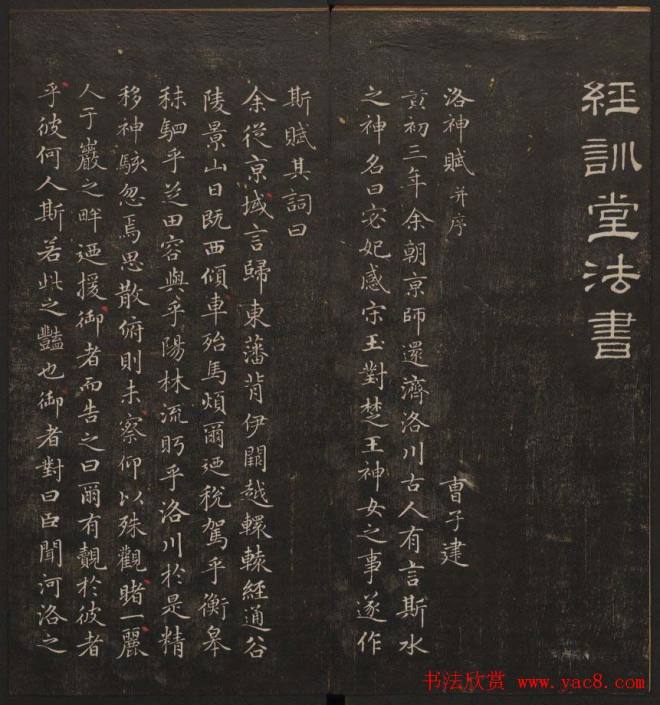 經訓堂法書
洛神賦 并序
曹子建
黃初三年余朝京師還濟洛川古人有言斯水
之神名曰宓妃感宋玉對楚王神女之事遂作
斯賦其詞曰
余從京域言歸東藩背伊闕越轘轅經通谷
陵景山日既西傾車殆馬煩爾迺稅駕乎衡皋
秣駟乎芝田容與乎陽林流眄乎洛川於是精
移神駭忽焉思散俯則未察仰以殊觀睹一麗
人于巖之畔迺援御者而告之曰爾有覿於彼者
乎彼何人斯若此之豔也御者對曰臣聞河洛之
书法欣赏 www.yac8.com